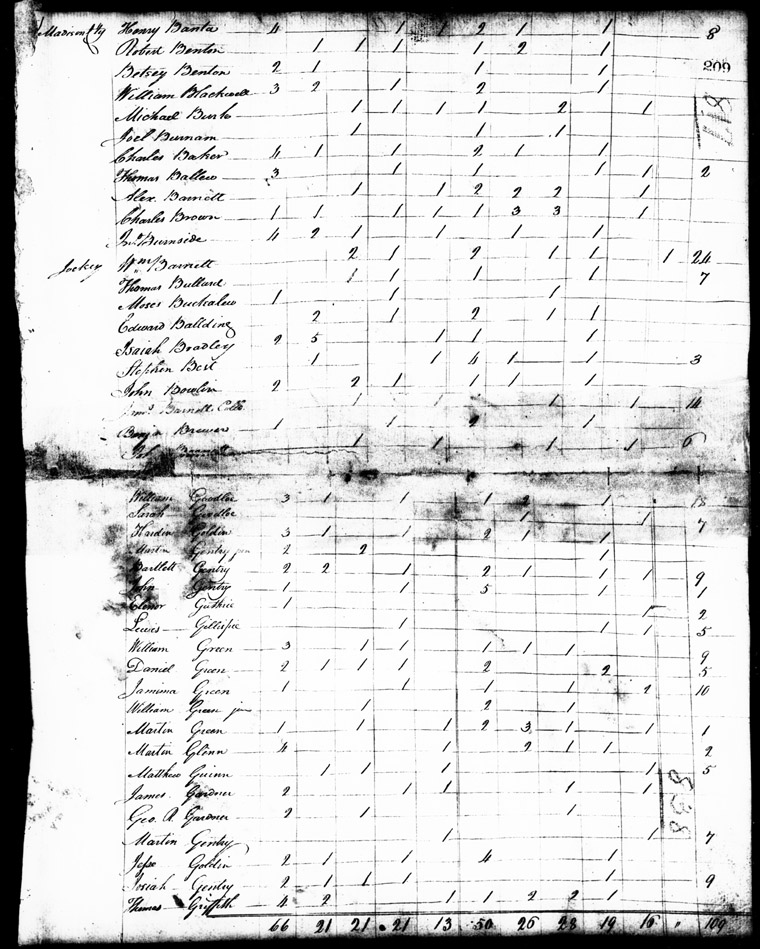 Madison Ky Henry Banta 4 1 1 2 1 1 8
Robert Benton 1 1 1 1 2 1
209
Betsey Benton 2 1 1 1
William Blackwell 3 2 1 2 1
Michael Burk 1 1 1 1 2 1
817
Joel Burnam 1 1 1
Charles Baker 4 1 1 2 1 1
Thomas Ballew 3 1 1 1 1 2
Alex. Barnett 1 1 2 2 2 1
Charles Brown 1 1 1 1 1 3 3 1
Jno. Burnside 4 2 1 1 1 1
Jockey Wm. Barnett 2 1 2 1 1 1 24
Thomas Bullard 1 1 1 1 7
Moses Buckalew 1 1 1
Edward Ballding 2 1 2 1 1
Isaiah Bradley 2 5 1 1 1
Stephen Best 1 1 4 1 1 3
John Bowlin 2 2 1 1 1 1
Barnett 1 1 1 1 14
Benja Brewer 1 1 2 1
1 1 1 1 6
William Goodloe 3 1 1 1 2 1 18
Sarah Goodloe 1 1 7
Hardin Goldin 3 1 1 2 1 1
Martin Gentry 2 2 1
Bartlett Gentry 2 2 1 2 1 1 1 9
John Gentry 1 1 5 1 1
Elenor Guthrie 1 1 2
Lewis Gillispie 1 1 1 5
William Green 3 1 1 1 1 1 9
Daniel Green 2 1 1 1 2 2 5
Jamima Green 1 1 1 1 2 10
William Green jun 1 2 1
Martin Green 1 1 1 2 3 1 1 1
Martin Glenn 4 1 2 1 1 2
Matthew Guinn 1 1 1 1 5
James Gardner 2 1 1 1 1
838
Geo. R. Gardner 2 1 1
Martin Gentry 1 1 7
Jesse Goldin 2 1 1 4 1
Josiah Gentry 2 1 1 1 1 9
Thomas Griffith 4 2 1 1 2 2 1
66 21 21 21 13 50 26 28 19 16 " 109